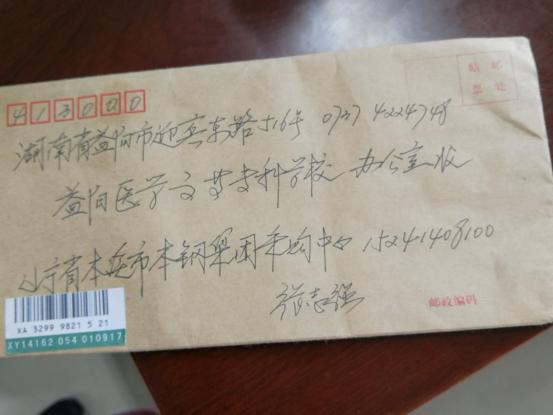 贴 邮
票 处
413000
湖南省益阳市迎宾东路516号 0737 4224748
益阳医学高等专科学校 办公室收
辽宁省本溪市本钢集团采购中心 15241408100
张志强
邮政编码
XA 3299 9821 5 21
XY14162 054 010917